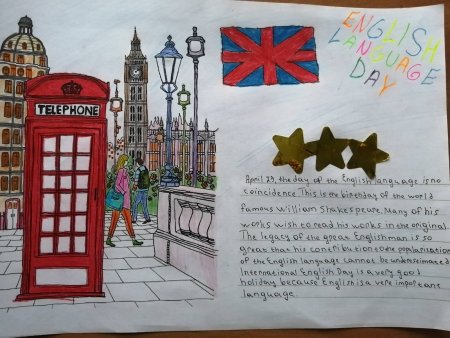 ENGLISH
LANGUAGE
DAY
TELEPHONE
April 23, the day of the English language is no
coincidence. This is the birthday of the world
famous William Shakespeare. Many of his
works wish to read his works in the original.
The legacy of the great Englishman is so
great that his contribution to the popularization
of the English language cannot be underestimated
International English Day is a very good
holiday because English is a very important
language.